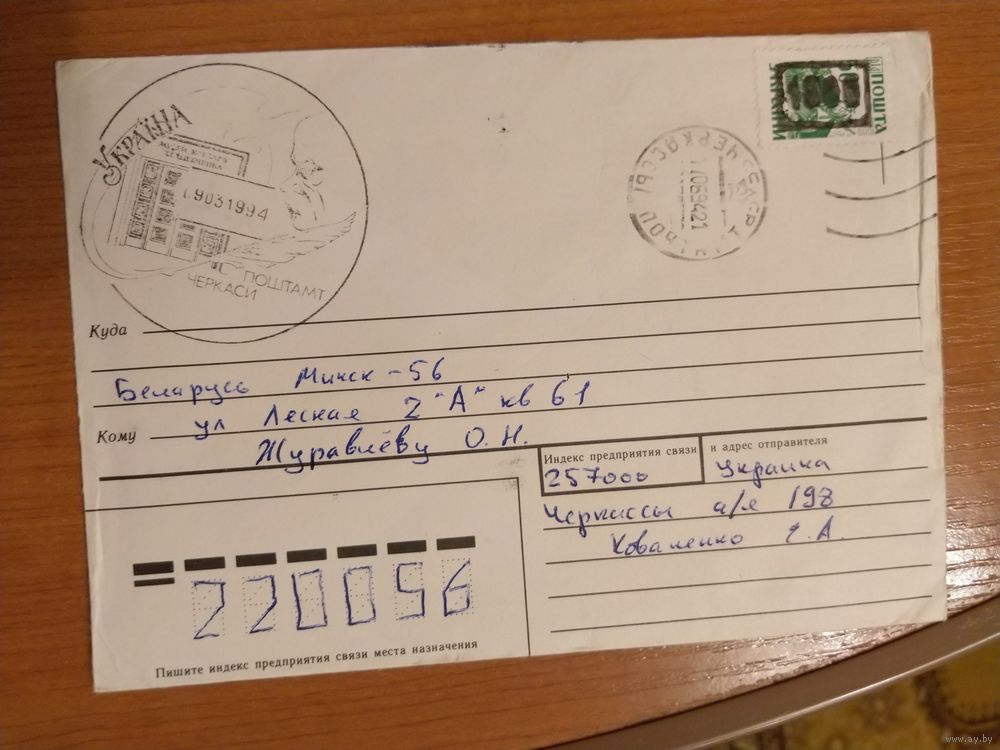 УКРАЇНА
19031994
ПОШТАМТ
ЧЕРКАСИ
ПОШТА
ЧЕРКАССЫ
17069421
Куда
Беларусь Минск-56
ул Лесная 2 "А" кв 61
Кому
Журавлёву О. Н.
Индекс предприятия связи
и адрес отправителя
257000
Украина
Черкассы а/я 198
Коваленко
А.
220056
Пишите индекс предприятия связи места назначения
www.ay.by